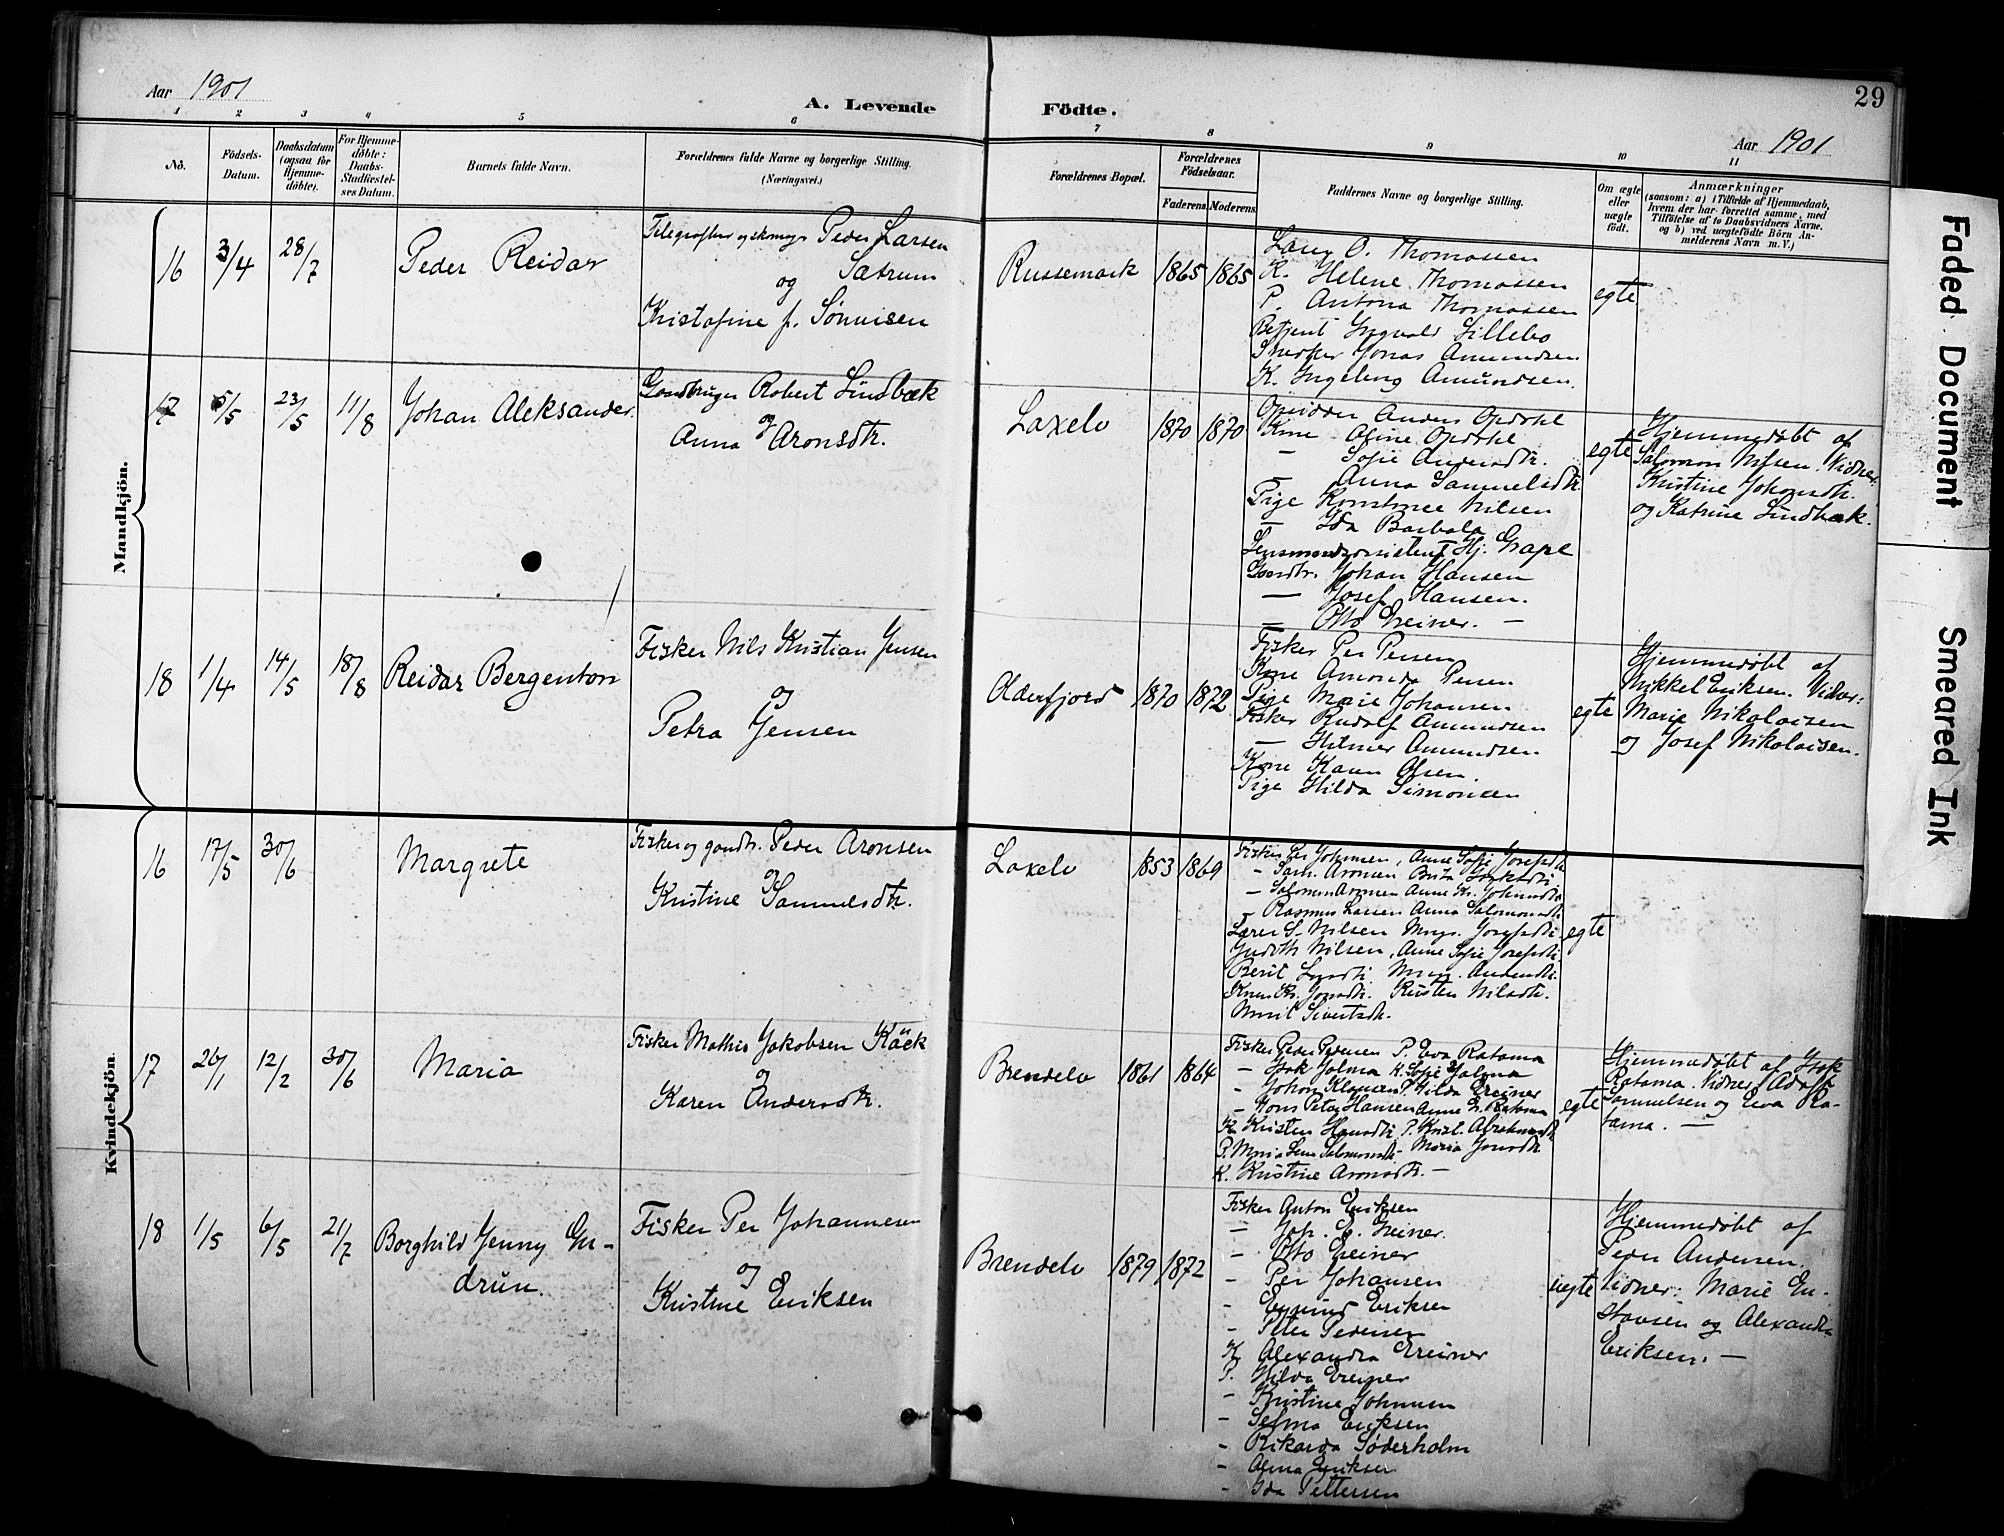 Aar 1901
A. Levende Födte.
29
Aar 1901
1 2 3 4 5 6 7 8 9 10 11
No.
Födsels-
Datum.
Daabsdatum
(ogsaa for
Hjemme-
döbte).
For Hjemme-
döbte:
Daabs-
Stadfæstel-
ses Datum.
Barnets fulde Navn.
Forældrenes fulde Navne og borgerlige Stilling.
(Næringsvei.)
Forældrenes Bopæl.
Forældrenes
Födselsaar.
Faderens. Moderens.
Faddernes Navne og borgerlige Stilling.
Om ægte
eller
uægte
födt.
Anmærkninger
(saasom: a) i Tilfælde af Hjemmedaab,
hvem der har forrettet samme, med
Tilföielse af to Daabsvidners Navne.
og b) ved uægtefödte Börn An-
melderens Navn m. V.)
Mandkjön.
16 3/4 28/7 Peder Reidar
Peder Larsen
Sætrum
og
Kristofine f.
Russemark 1865 1865
O. Thomassen
K. Helene Thomassen
P. Antona Thomassen
Betjent Ingvald Lillebo
Jonas Amundsen
K. Ingeborg Amundsen.
egte
17 5/5 23/5 11/8 Johan Aleksander.
Gaardbruger Robert Lindbæk
og
Anna Aronsdtr.
Laxelv 1870 1870
Anders Opdahl
Kone Oline Opdahl
— Sofie Andersdtr.
— Anna Samuelsdtr.
Pige Nilsen
— Ida Barbala
Lensmandsassistent Hj. Grape
Gaardbr. Johan Hansen
— Josef Hansen.
— Otto Greiner. —
egte
Hjemmedøbt af
Salomon Nilsen. Vidner:
Kristine Johansdtr.
og Katrine Lindbæk.
18 1/4 14/5 18/8 Reidar Bergenton
Fisker Nils Kristian Jensen
og
Petra Jensen
Olderfjord 1870 1872
Fisker Per Persen
Kone Amanda Persen
Pige Marie Johansen
Fisker Rudolf Amundsen
— Hilmer Amundsen
Kone Karen Olsen.
Pige Hilda Simonsen
egte
Hjemmedøbt af
Mikkel Eriksen. Vidner:
Marie Nikolaisen
og Josef Nikolaisen.
Kvindekjön.
16 17/5 30/6 Margrete
Fisker og gaardbr. Peder Aronsen
og
Kristine Samuelsdtr.
Laxelv 1853 1869
Fisker Per Johnsen, Anne Sofie Josefsdtr.
— Sam. Aronsen Brita
— Salomon Aronsen Anne Kr. Johnsdtr.
— Rasmus Larsen Anna Salomonsdtr.
Lærer S. Nilsen Josefsdtr.
Judith Nilsen, Anne Sofie Josefsdtr.
Berit Marg. Andersdtr.
Kristen Nilsdtr.
Marit Sivertsdtr.
egte
17 26/1 12/2 30/6 Maria
Fisker Mathis Jakobsen Käck
og
Karen Andersdtr.
Brendelv 1861 1864
Fisker Peder Pedersen P. Eva Ratama
— Isak Jalma K. Sofie Jalma
— Johan Klausen P. Hilda Greiner
— Hans Peter Hansen Anne E. Ratama
K. Kristen Hansdtr. P. Krist. Abrahamsdtr.
P. Maria Lena Salomonsdtr. Maria Jonsdtr.
K. Kristine Aronsdtr. —
egte
Hjemmedøbt af Isak
Ratama. Vidner: Adolf
Samuelsen og Eva Ra-
tama. —
18 1/5 6/5 21/7 Borghild Jenny Gu-
drun.
Fisker Per Johannesen
og
Kristine Eriksen
Brendelv 1879 1872
Fisker Anton Eriksen
— Joh. E. Greiner.
— Otto Greiner
— Per Johansen
— Eyvind Eriksen
— Peter Pedersen
K. Alexandra Greiner
P. Hilda Greiner
— Kristine Johnsen
— Selma Eriksen
— Rikarda Søderholm
— Alma Eriksen
— Ida Pettersen
uegte
Hjemmedøbt af
Peder Andersen.
Vidner: Marie Gu-
stavsen og Alexandra
Eriksen. —
Faded Document
Smeared Ink